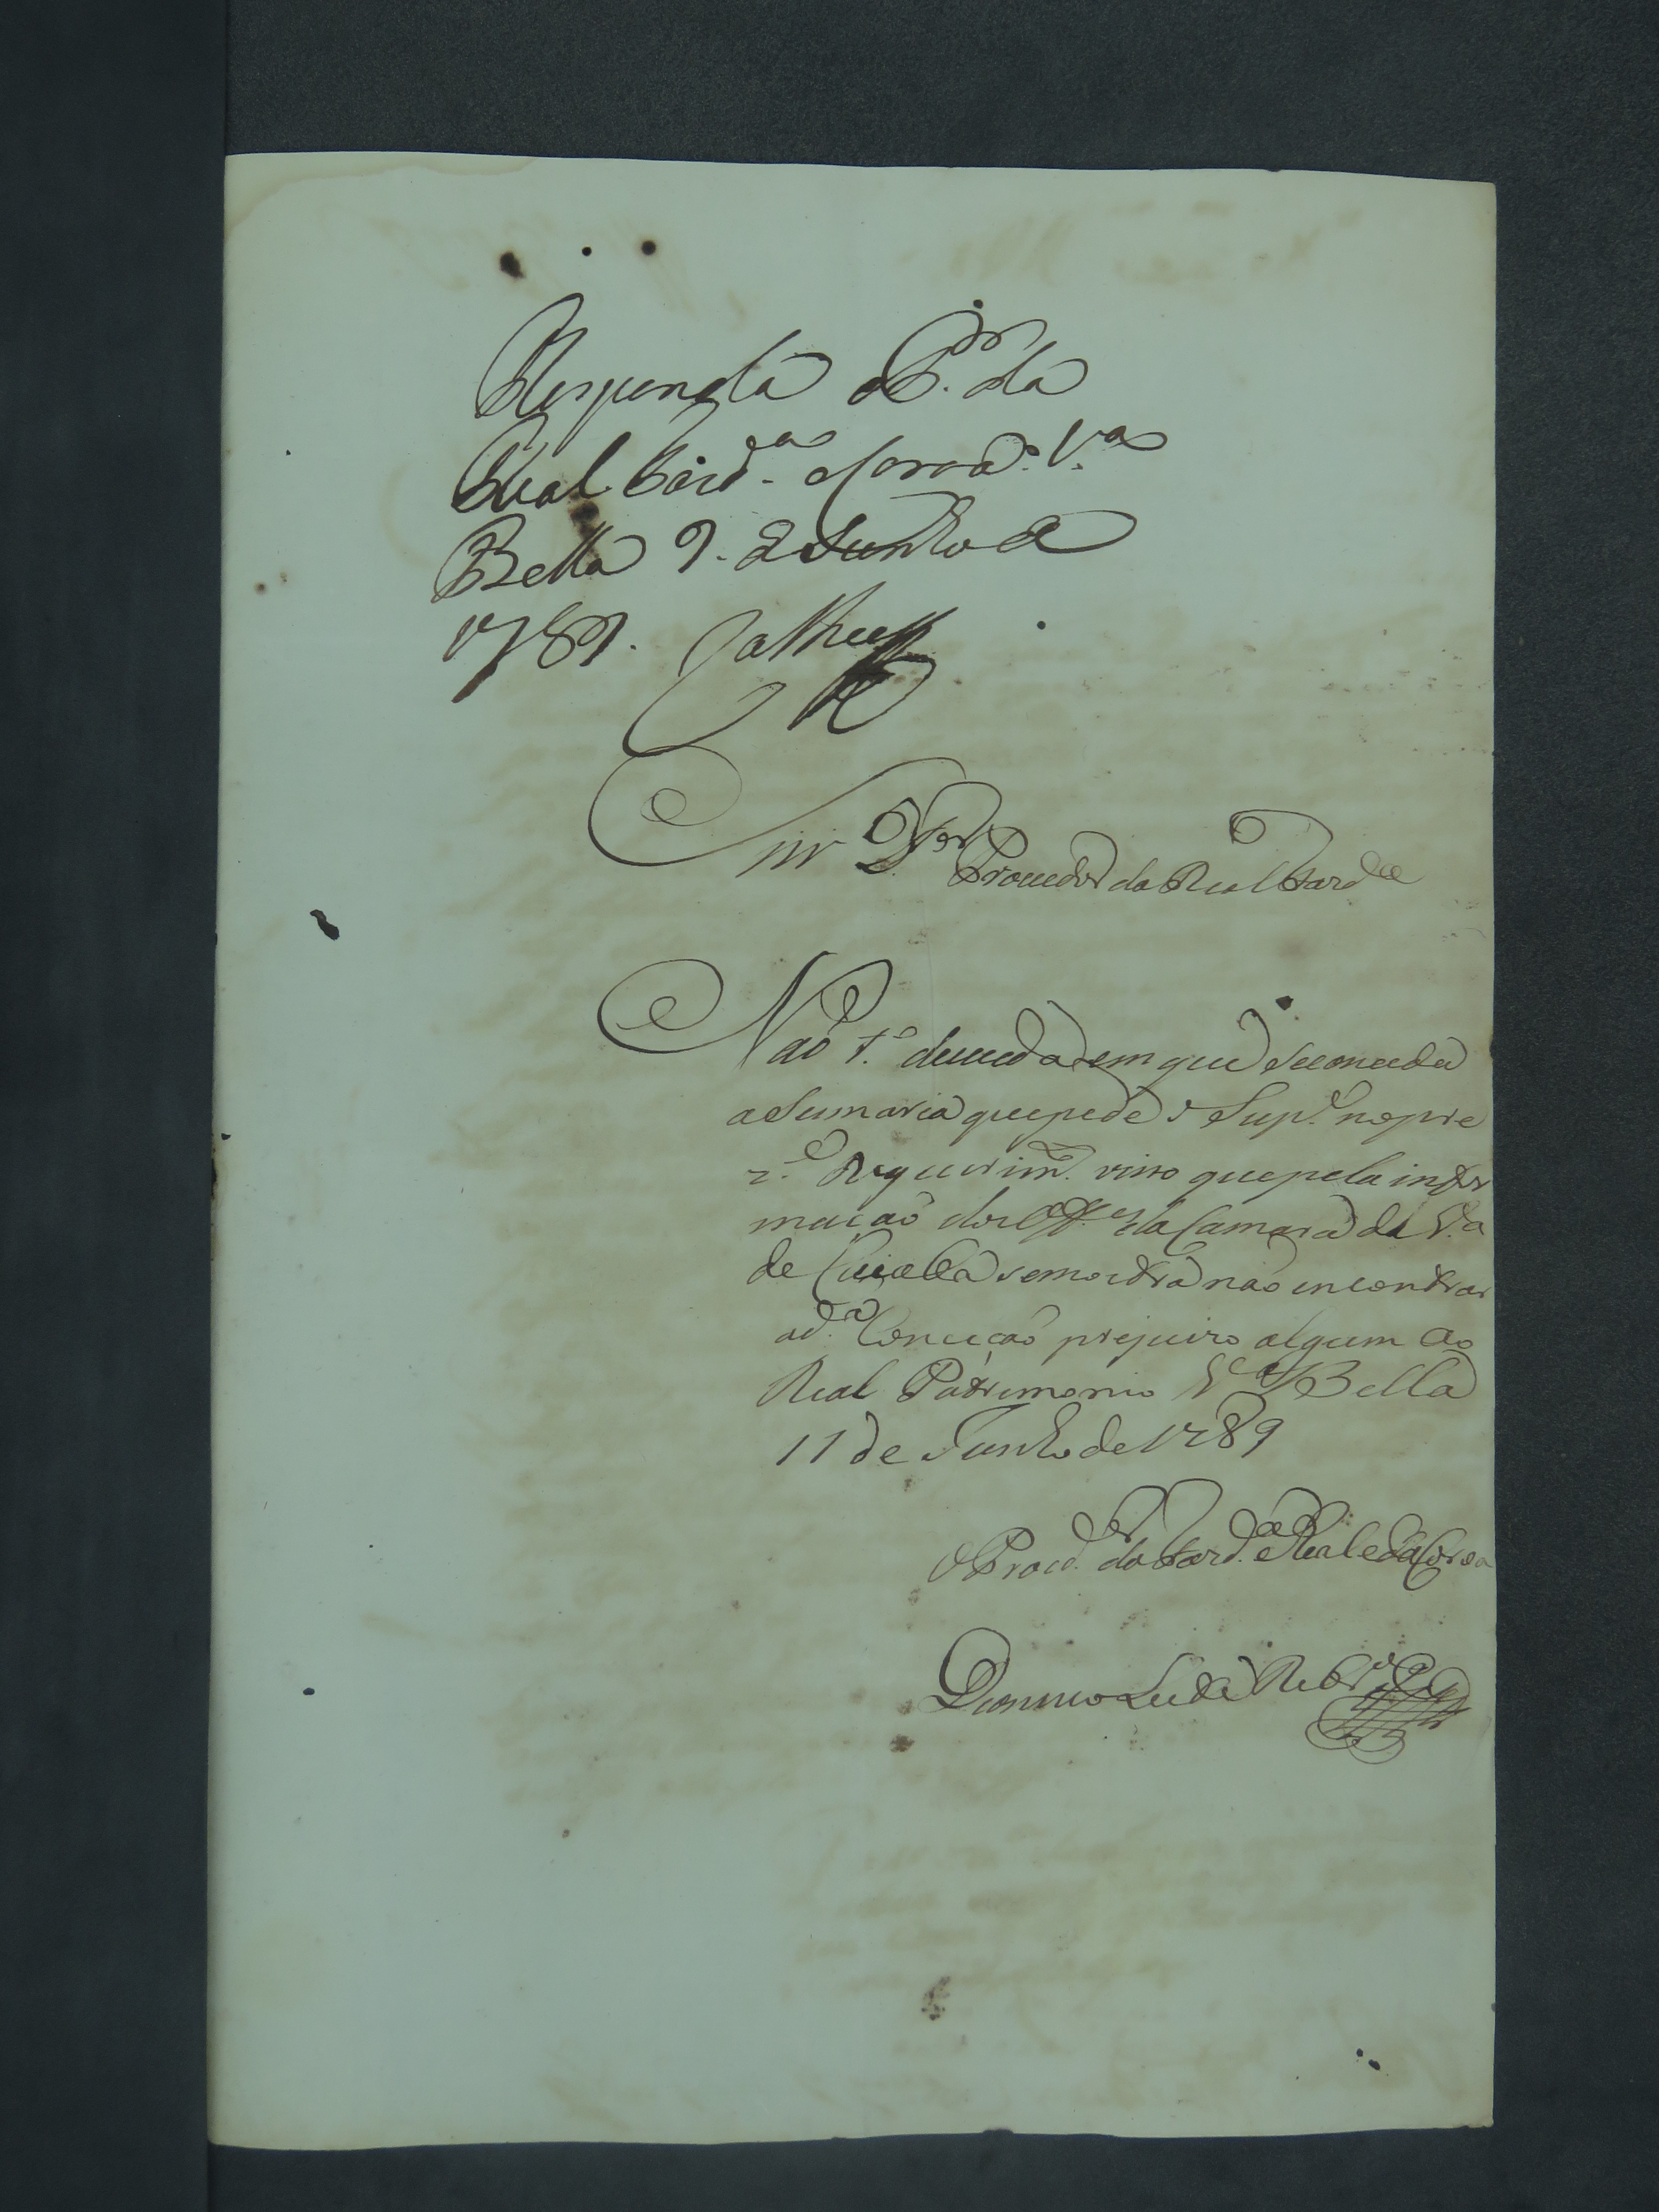 Responda o P.dor da
Real Fazd.a e Coroa. V.a
Bella 9. de Junho de
1789.
Snr D.or Provedor da Real Fazd.a
Naõ t.o duvida em que se conceda
a Sesmaria que pede o Sup.e no pre
z.e Requerim.to visto que pela infor
maçaõ dos Off.es da Camara da V.a
de Cuiaba se mostra naõ encontrar
a d.a Conceçaõ prejuizo algum ao
Real Patrimonio V.a Bella
11 de Junho de 1789
O Procd.or da Fazd.a Real e da Coroa